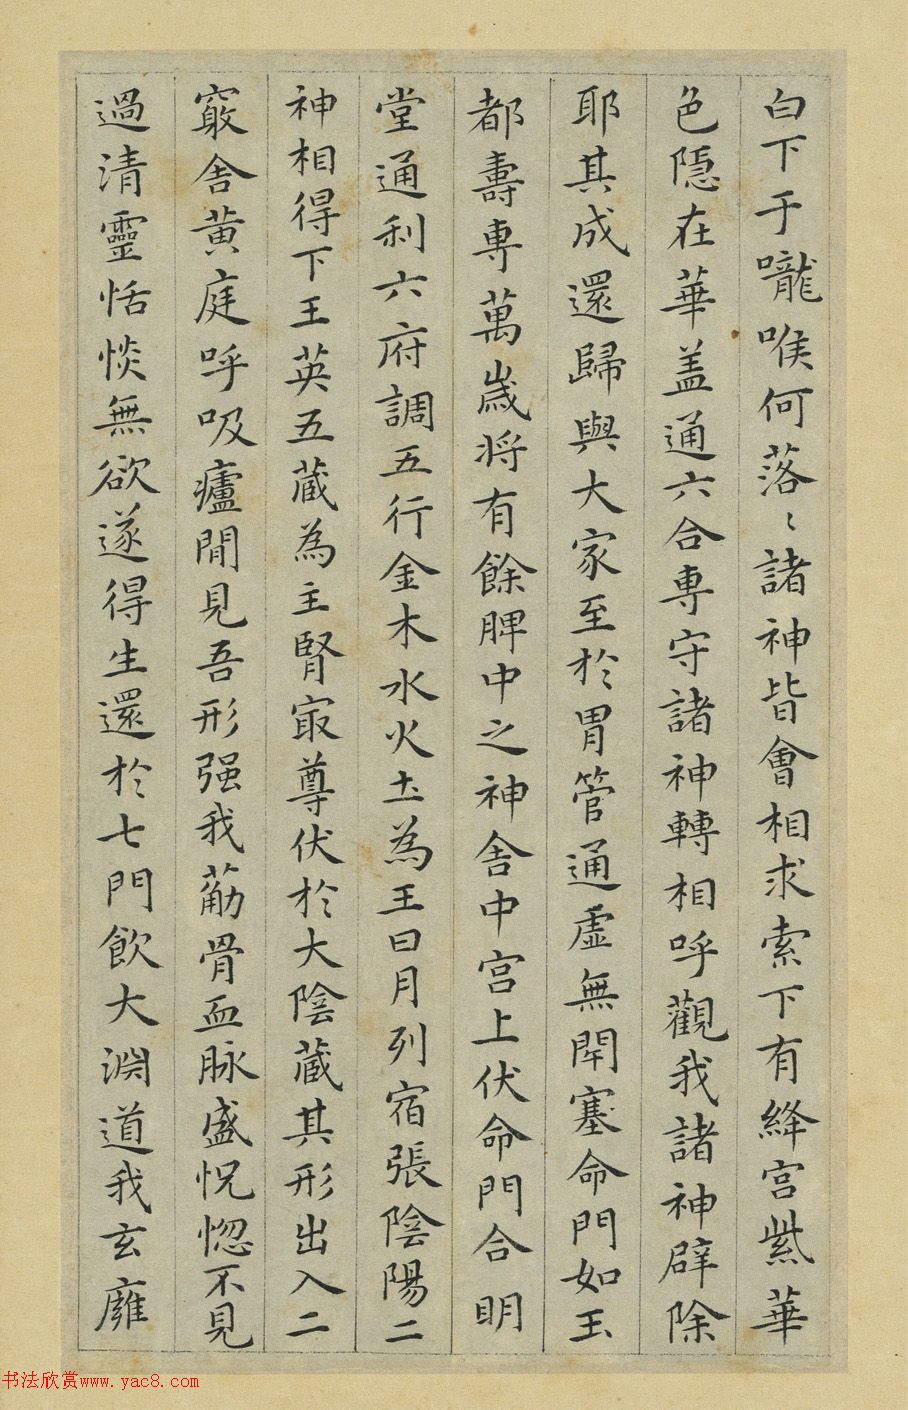 白下于嚨喉何落〻諸神皆會相求索下有絳宮紫華
色隱在華盖通六合專守諸神轉相呼觀我諸神辟除
耶其成還歸與大家至於胃管通虛無閉塞命門如玉
都壽專萬歲将有餘脾中之神舍中宮上伏命門合明
堂通利六府調五行金木水火土為王日月列宿張陰陽二
神相得下王英五蔵為主腎㝡尊伏於大陰蔵其形出入二
竅舍黄庭呼吸廬間見吾形强我葪骨血脉盛怳惚不見
過清靈恬惔無欲遂得生還於七門飲大淵道我玄廱
书法欣赏www.yac8.com